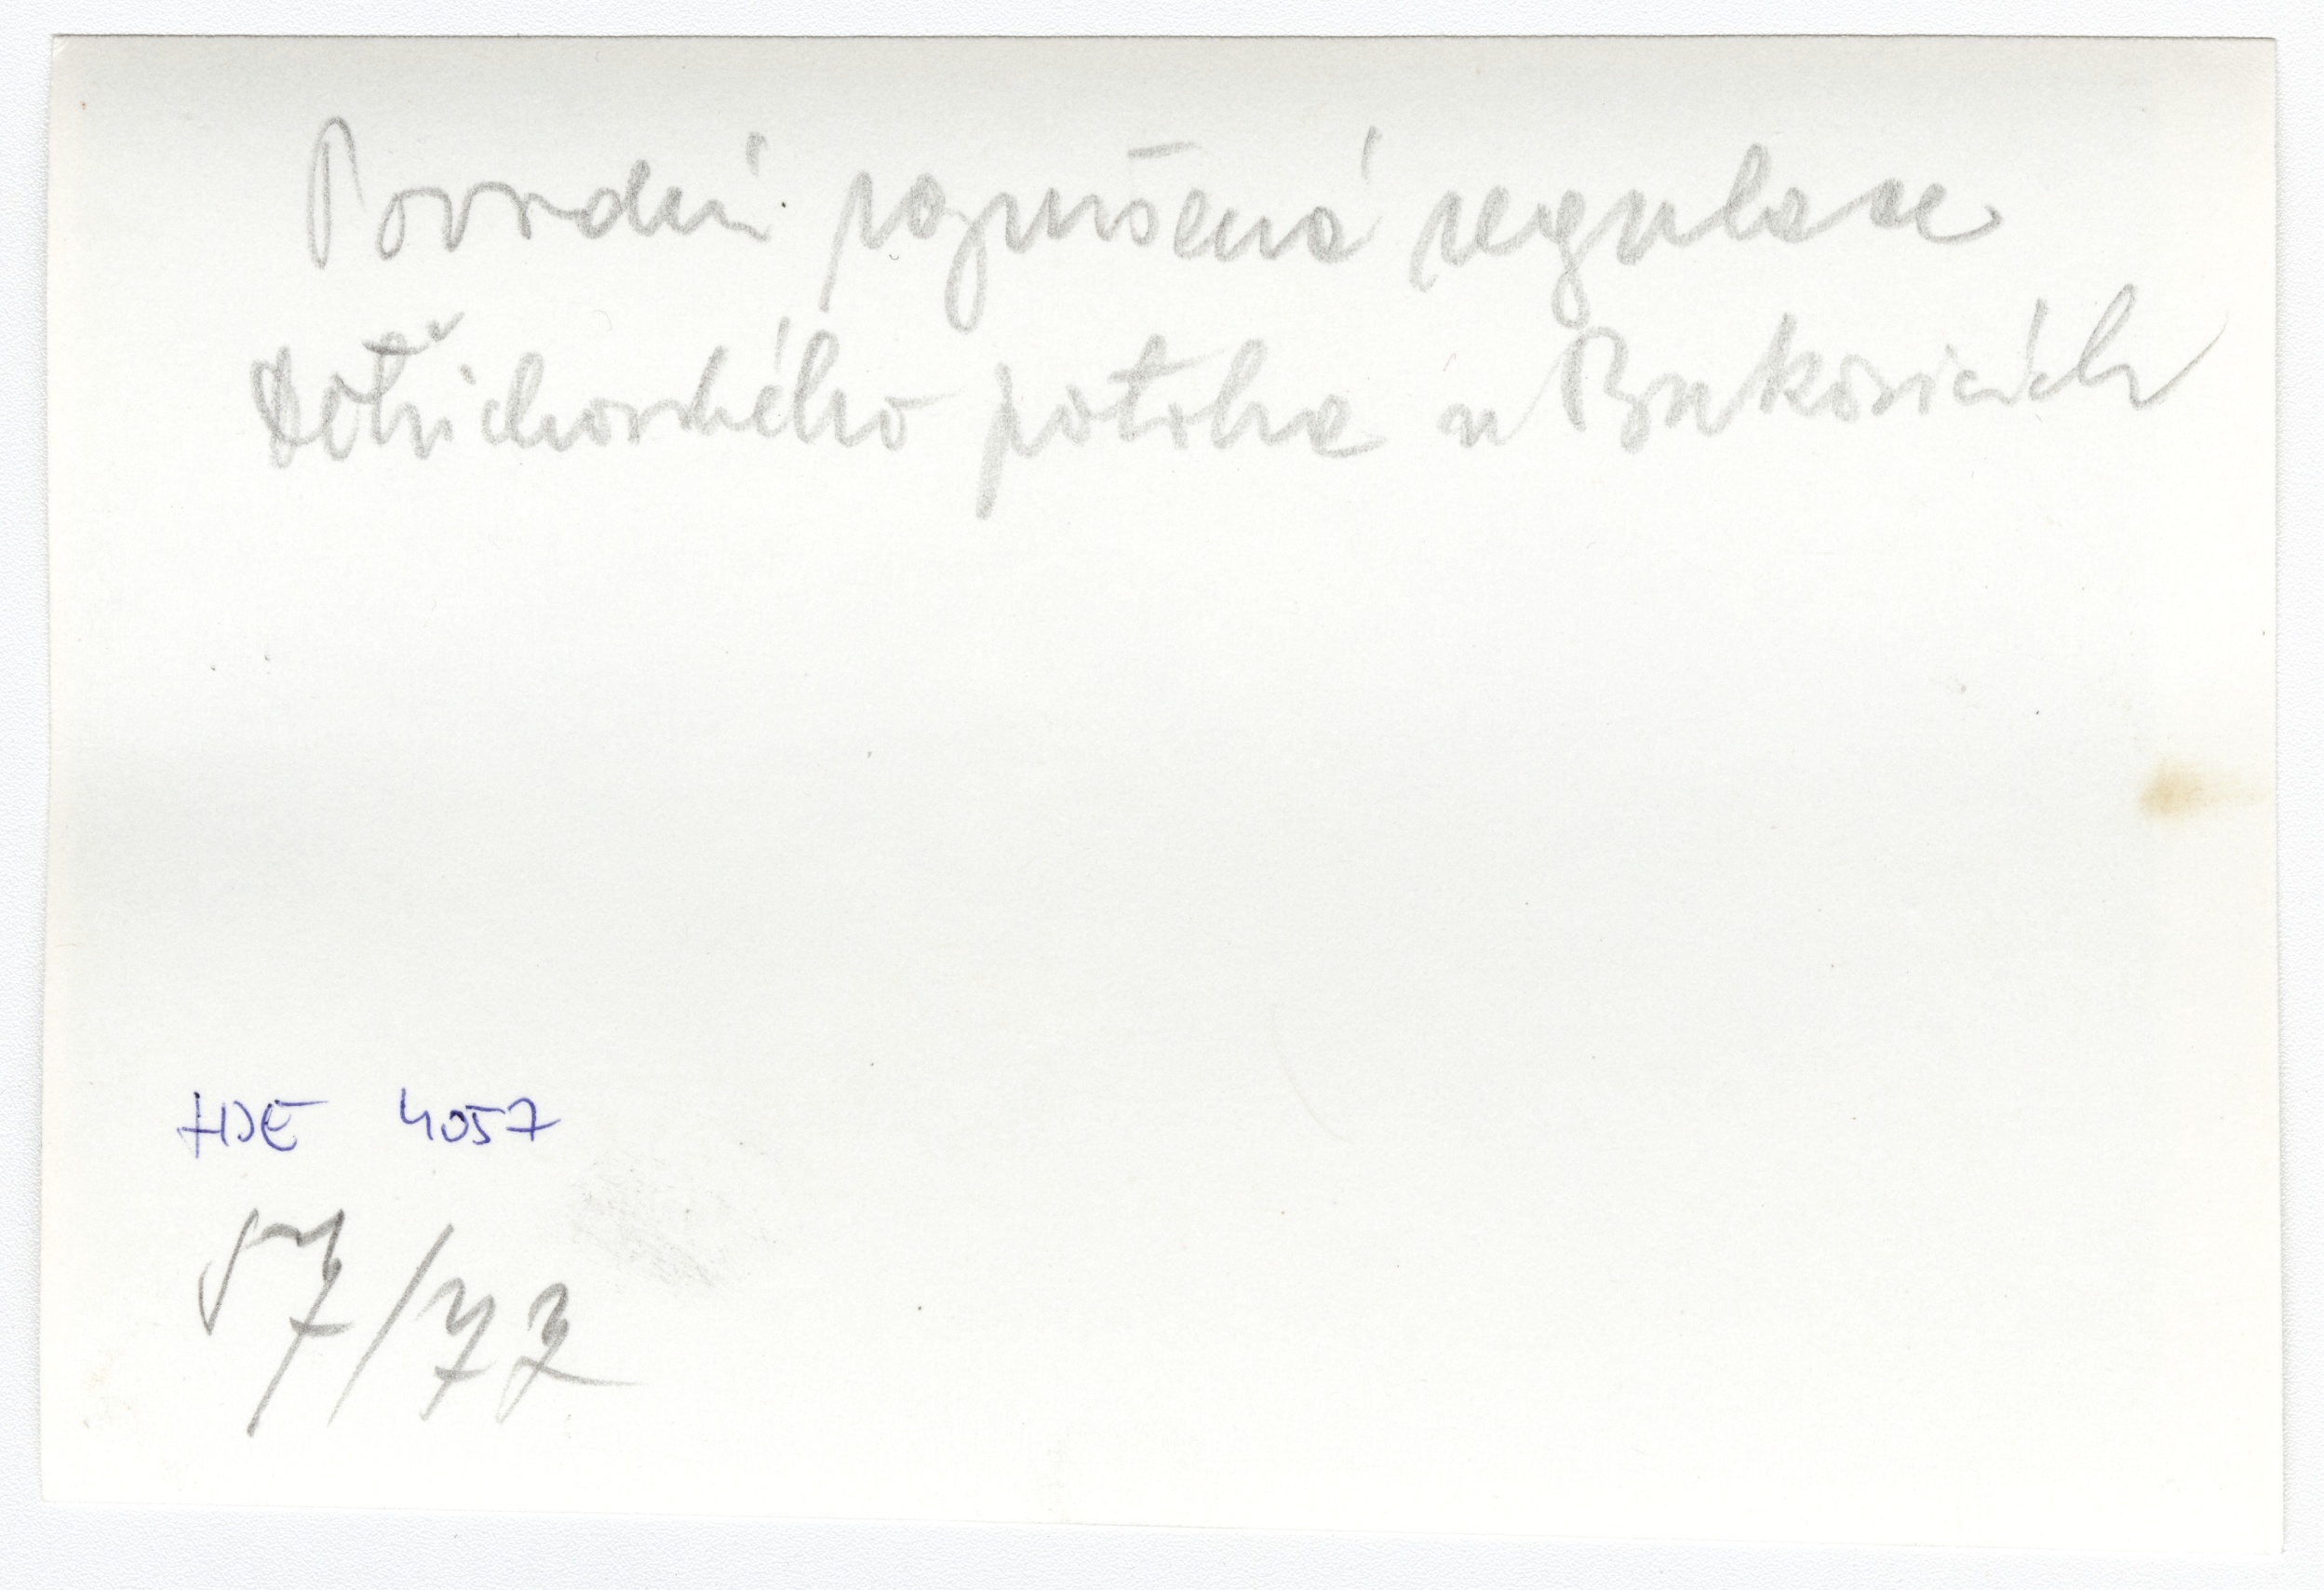 Povodní rozrušená regulace
Dětřichovského potoka u Bukovicích
HDE 4057
57/72